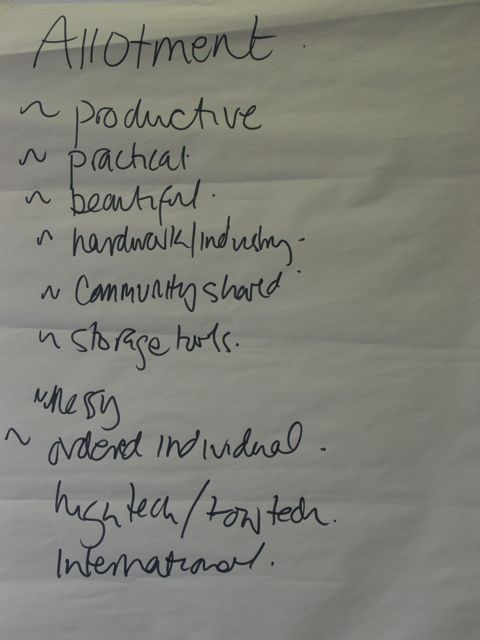 Allotment.
~ productive
~ practical
~ beautiful.
~ hardwork/industry.
~ Community shared
~ storage tools.
~ messy
~ ordered individual.
high tech/low tech.
International.